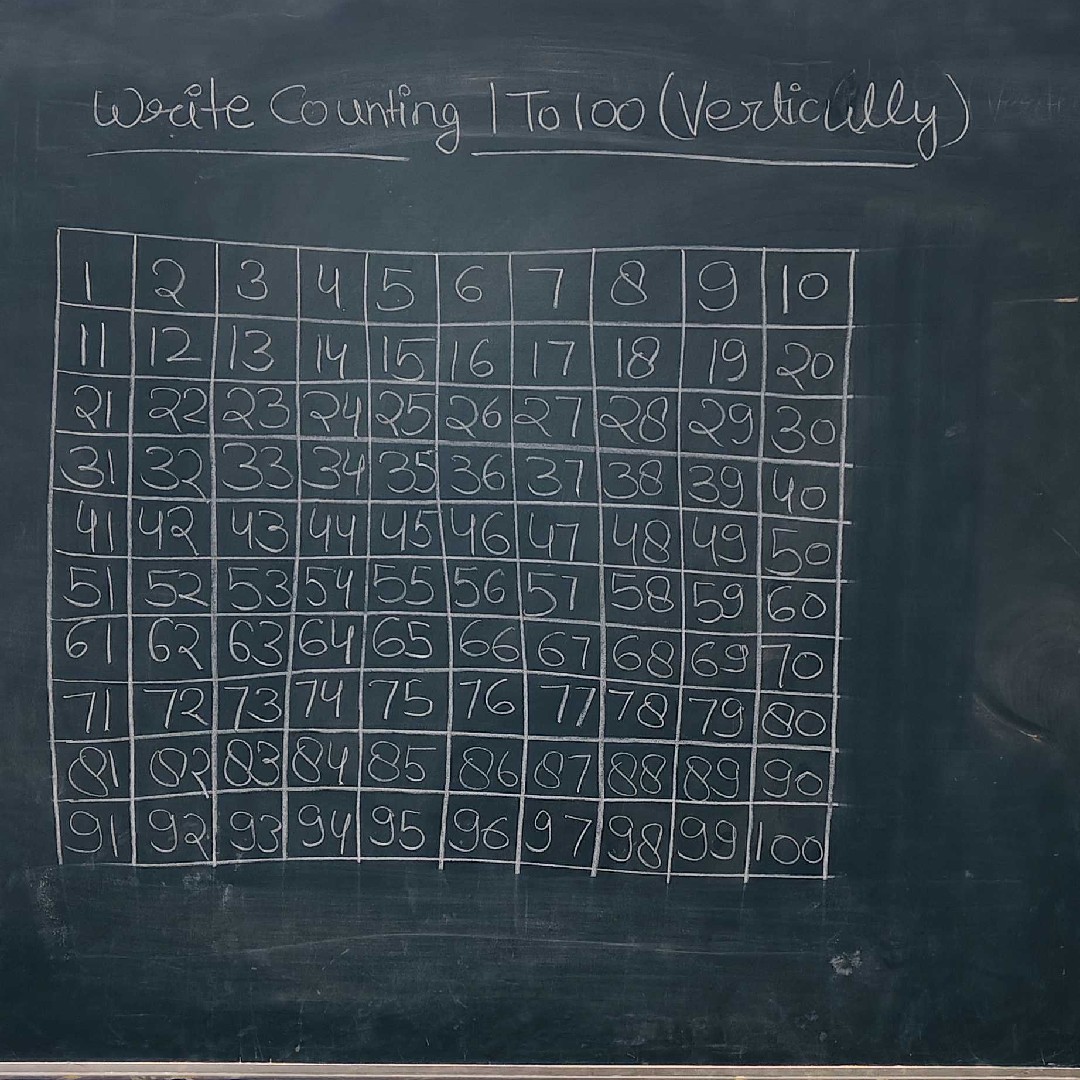 Write Counting 1 To 100 (Vertically)
1 2 3 4 5 6 7 8 9 10
11 12 13 14 15 16 17 18 19 20
21 22 23 24 25 26 27 28 29 30
31 32 33 34 35 36 37 38 39 40
41 42 43 44 45 46 47 48 49 50
51 52 53 54 55 56 57 58 59 60
61 62 63 64 65 66 67 68 69 70
71 72 73 74 75 76 77 78 79 80
81 82 83 84 85 86 87 88 89 90
91 92 93 94 95 96 97 98 99 100